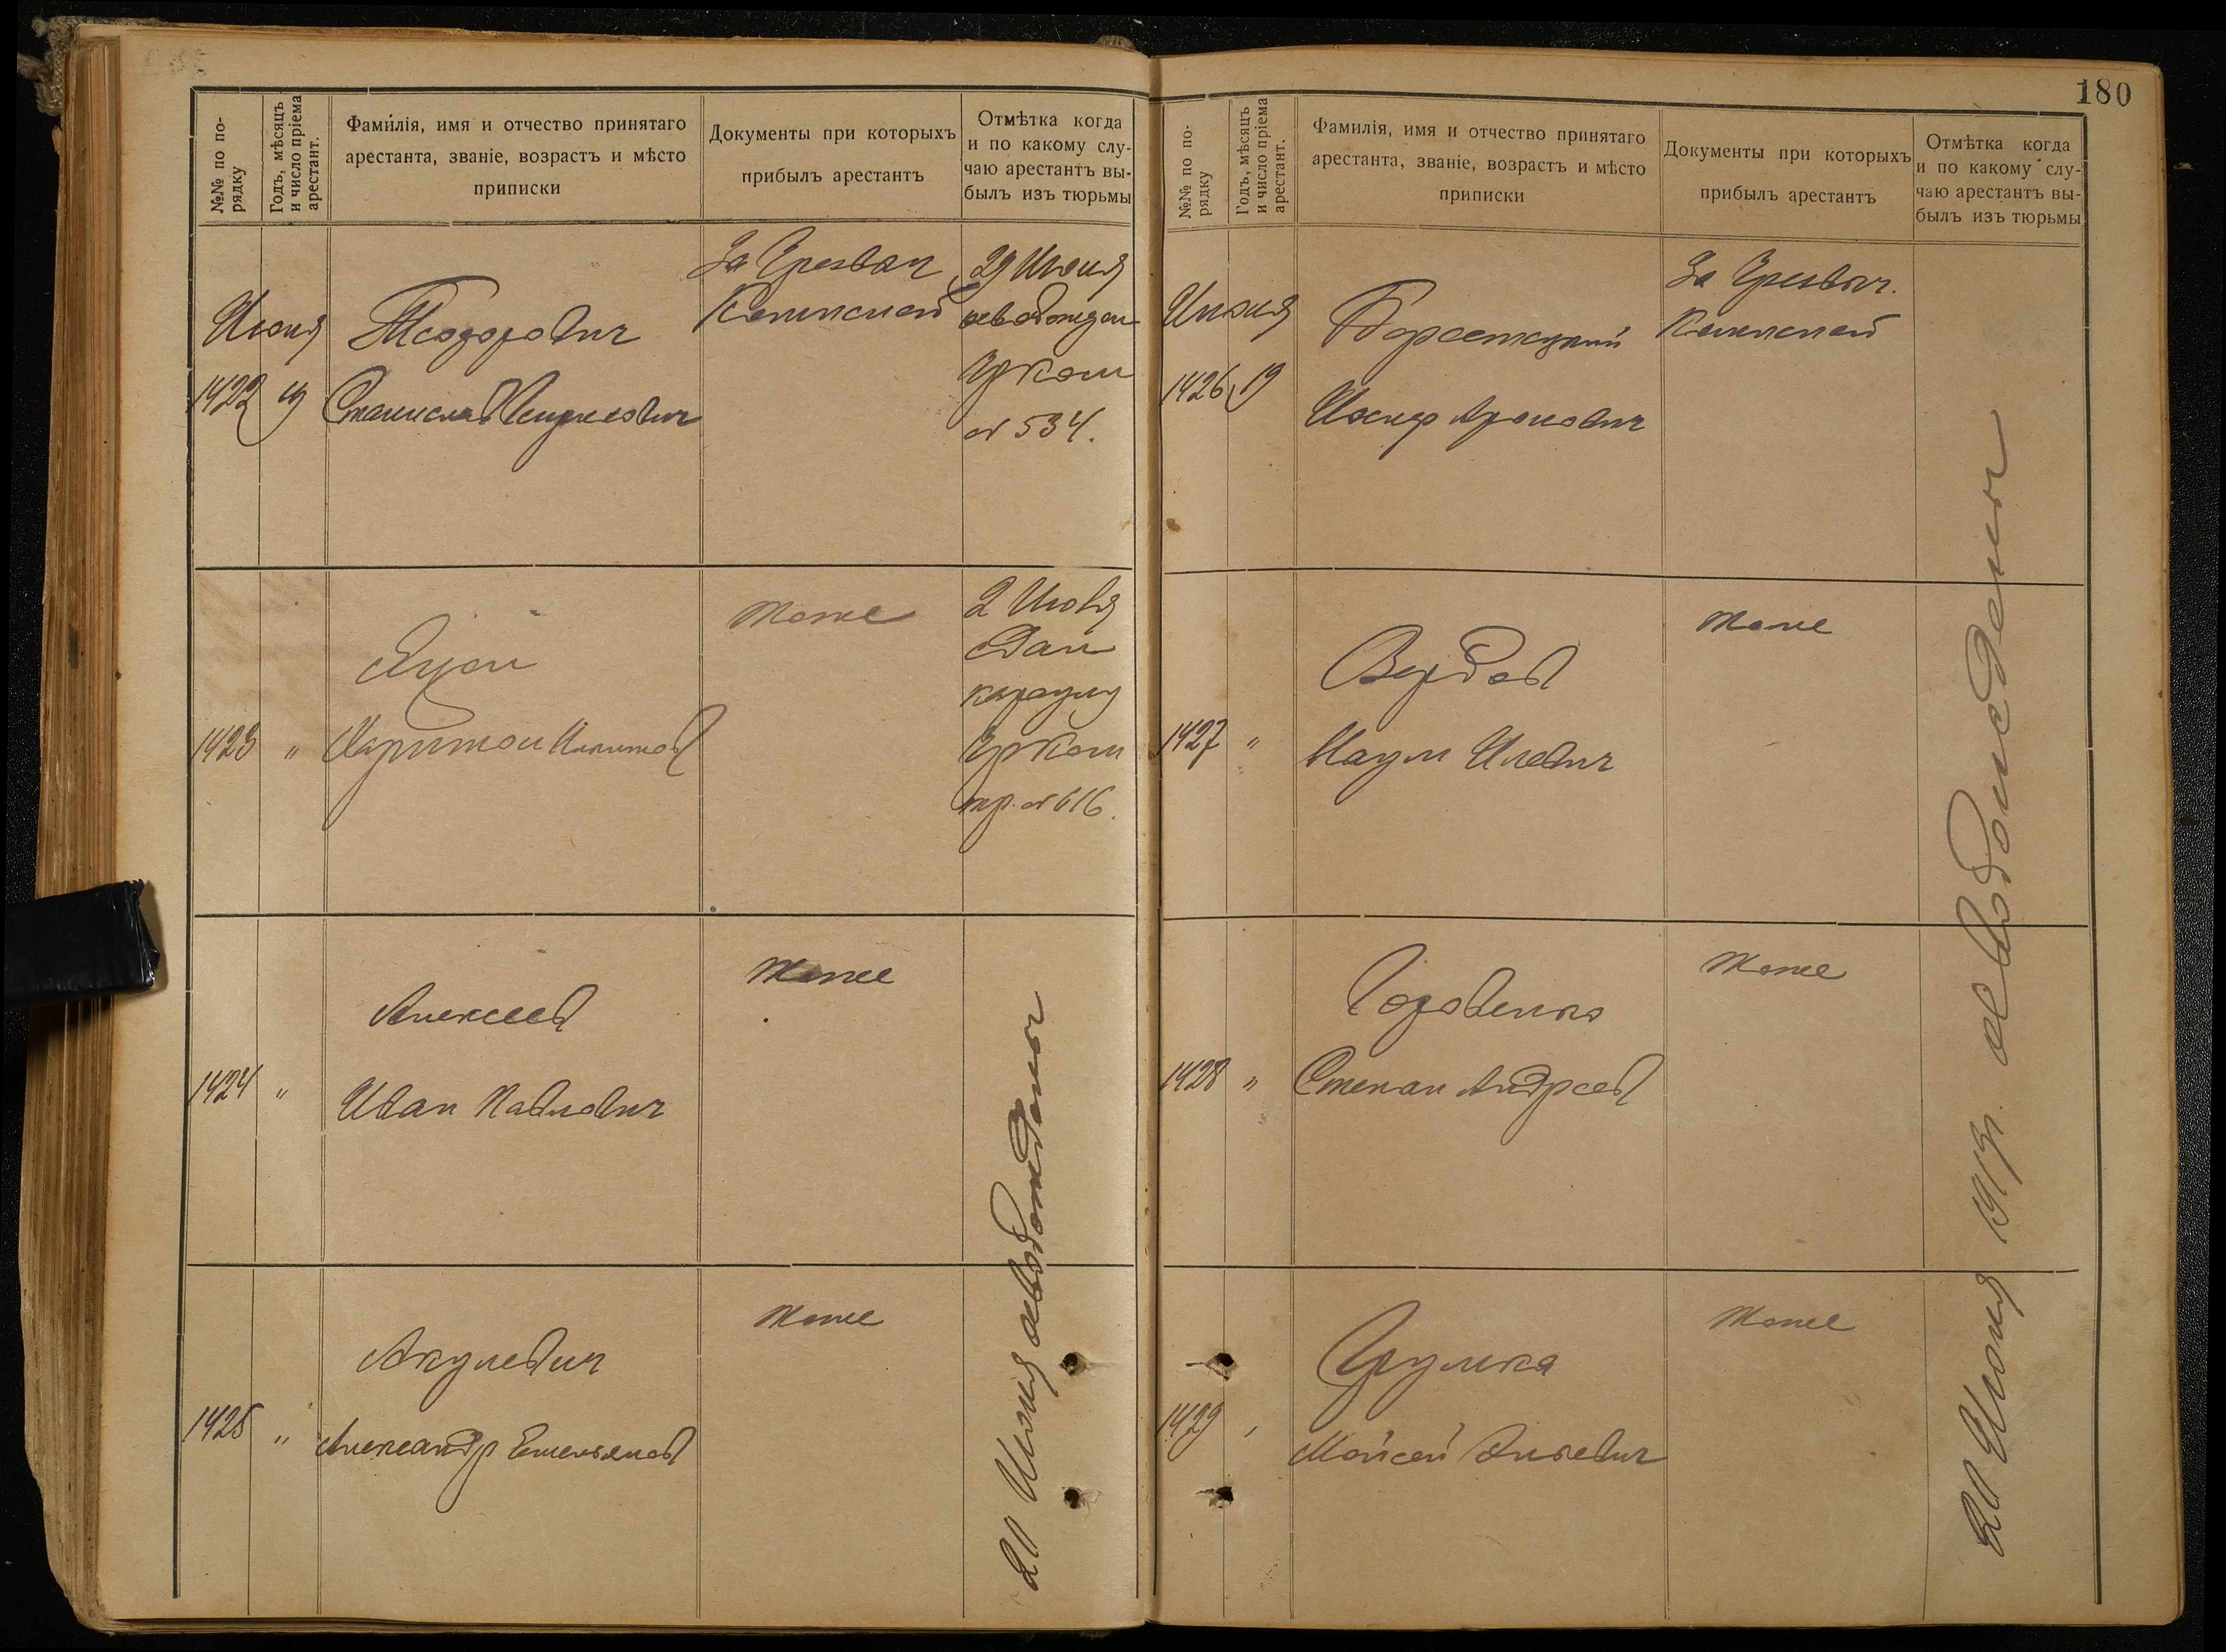 180
№№ по по-
рядку
Годъ, мѣсяцъ
и число пріема
арестант.
Фамилія, имя и отчество принятаго
арестанта, званіе, возрастъ и мѣсто
приписки
Документы при которыхъ
прибылъ арестантъ
Отмѣтка когда
и по какому слу-
чаю арестантъ вы-
былъ изъ тюрьмы
1422
Июня
19
Теодорович
Станислав
За Чрезвыч
Комиссией
29 Июня
освобожден
Урком
№ 534.
1423
"
Харитон
тоже
2 Июля
Сдан
караулу
Урком
пр. № 616.
1424
"
Алексеев
Иван Павлович
тоже
1425
"
Акулевич
Александр Емельянов
тоже
20 Июня освобождены
№№ по по-
рядку
Годъ, мѣсяцъ
и число пріема
арестант.
Фамилія, имя и отчество принятаго
арестанта, званіе, возрастъ и мѣсто
приписки
Документы при которыхъ
прибылъ арестантъ
Отмѣтка когда
и по какому слу-
чаю арестантъ вы-
былъ изъ тюрьмы
1426
Июня
19
Иосиф Аронович
За Чрезвыч.
Комиссией
1427
"
Вербов
Наум
тоже
1428
"
Горовенко
Степан Андреев
тоже
1429
"
Мойсей
тоже
20 Июня 1919г. освобождены